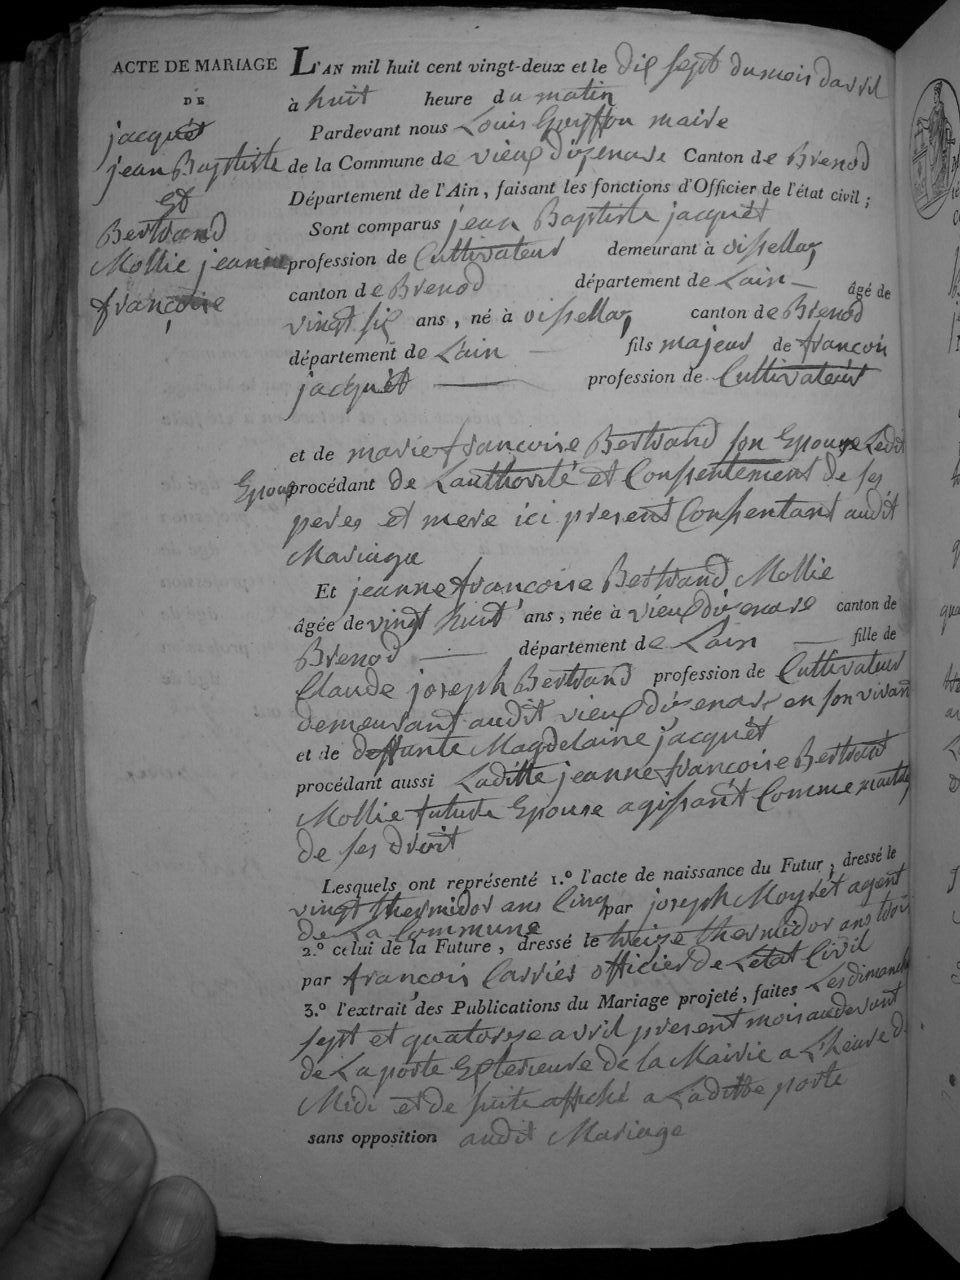 ACTE DE MARIAGE
DE
jacquet
jean Baptiste
et
Bertrand
Mollie jeanne
françoise
L'AN mil huit cent vingt-deux et le dix sept du mois davril
à huit heure du matin
Pardevant nous Louis maire
de la Commune de vieux dizenave Canton de Brenod
Département de l'Ain, faisant les fonctions d'Officier de l'état civil;
Sont comparus jean Baptiste jacquet
profession de Cultivateur demeurant à oissellaz
canton de Brenod département de Lain âgé de
vingt six ans, né à oissellaz canton de Brenod
département de Lain fils majeur de françois
jacquet profession de Cultivateur
et de marie françoise Bertrand son Epouse Ledit
Epoux procédant de Lauthorité et Consentement de ses
peres et mere ici present Consentant audit
Mariage
Et jeanne françoise Bertrand Mollie
âgée de vingt huit ans, née à vieux dizenave canton de
Brenod département de Lain fille de
Claude joseph Bertrand profession de Cultivateur
demeurant audit vieux dizenave en son vivant
et de deffante Magdelaine jacquet
procédant aussi Laditte jeanne françoise Bertrand
Mollie future Epouse agissant Comme
de ses droit
Lesquels ont représenté 1.º l'acte de naissance du Futur, dressé le
vingt thermidor ans cinq par joseph Moyret agent
de La Commune
2.º celui de la Future, dressé le treize thermidor ans trois
par françois Carrier officier de Letat Civil
3.º l'extrait des Publications du Mariage projeté, faites Les dimanche
sept et quatorze avril present mois audevant
de La porte Exterieure de la Mairie a Lheure de
Midi et de suite affiché a Laditte porte
sans opposition audit Mariage